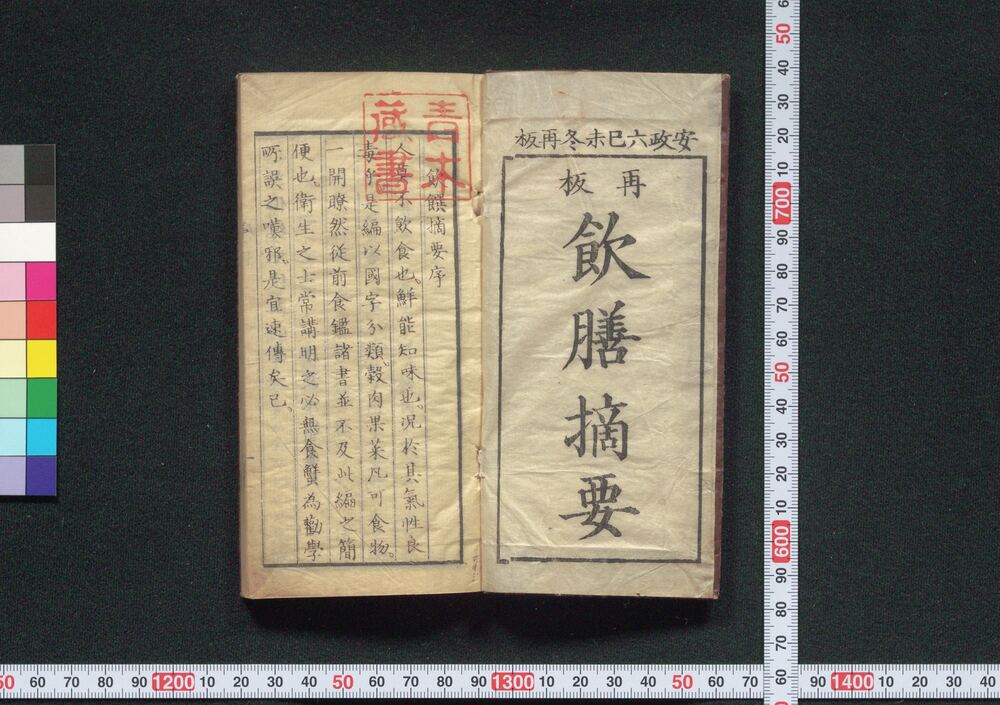 安政六巳未冬再板
再板
飲膳摘要
青木
藏書
飲饌摘要序
人莫不飲食也。鮮能知味也。況於其氣性良
毒乎是編以國字分類。穀肉果菜凡可食物。
一開瞭然従前食鑑諸書並不及此編之簡
便也。衛生之士常講明之必無食蟹為勸學
所誤之嘆邪。是宜速傳矣已。
50 40 30 20 10 700 90 80 70 60 50 40 30 20 10 600 90 80 70
50 60 70 80 90 1200 10 20 30 40 50 60 70 80 90 1300 10 20 30 40 50 60 70 90 1400 10 20 30 40